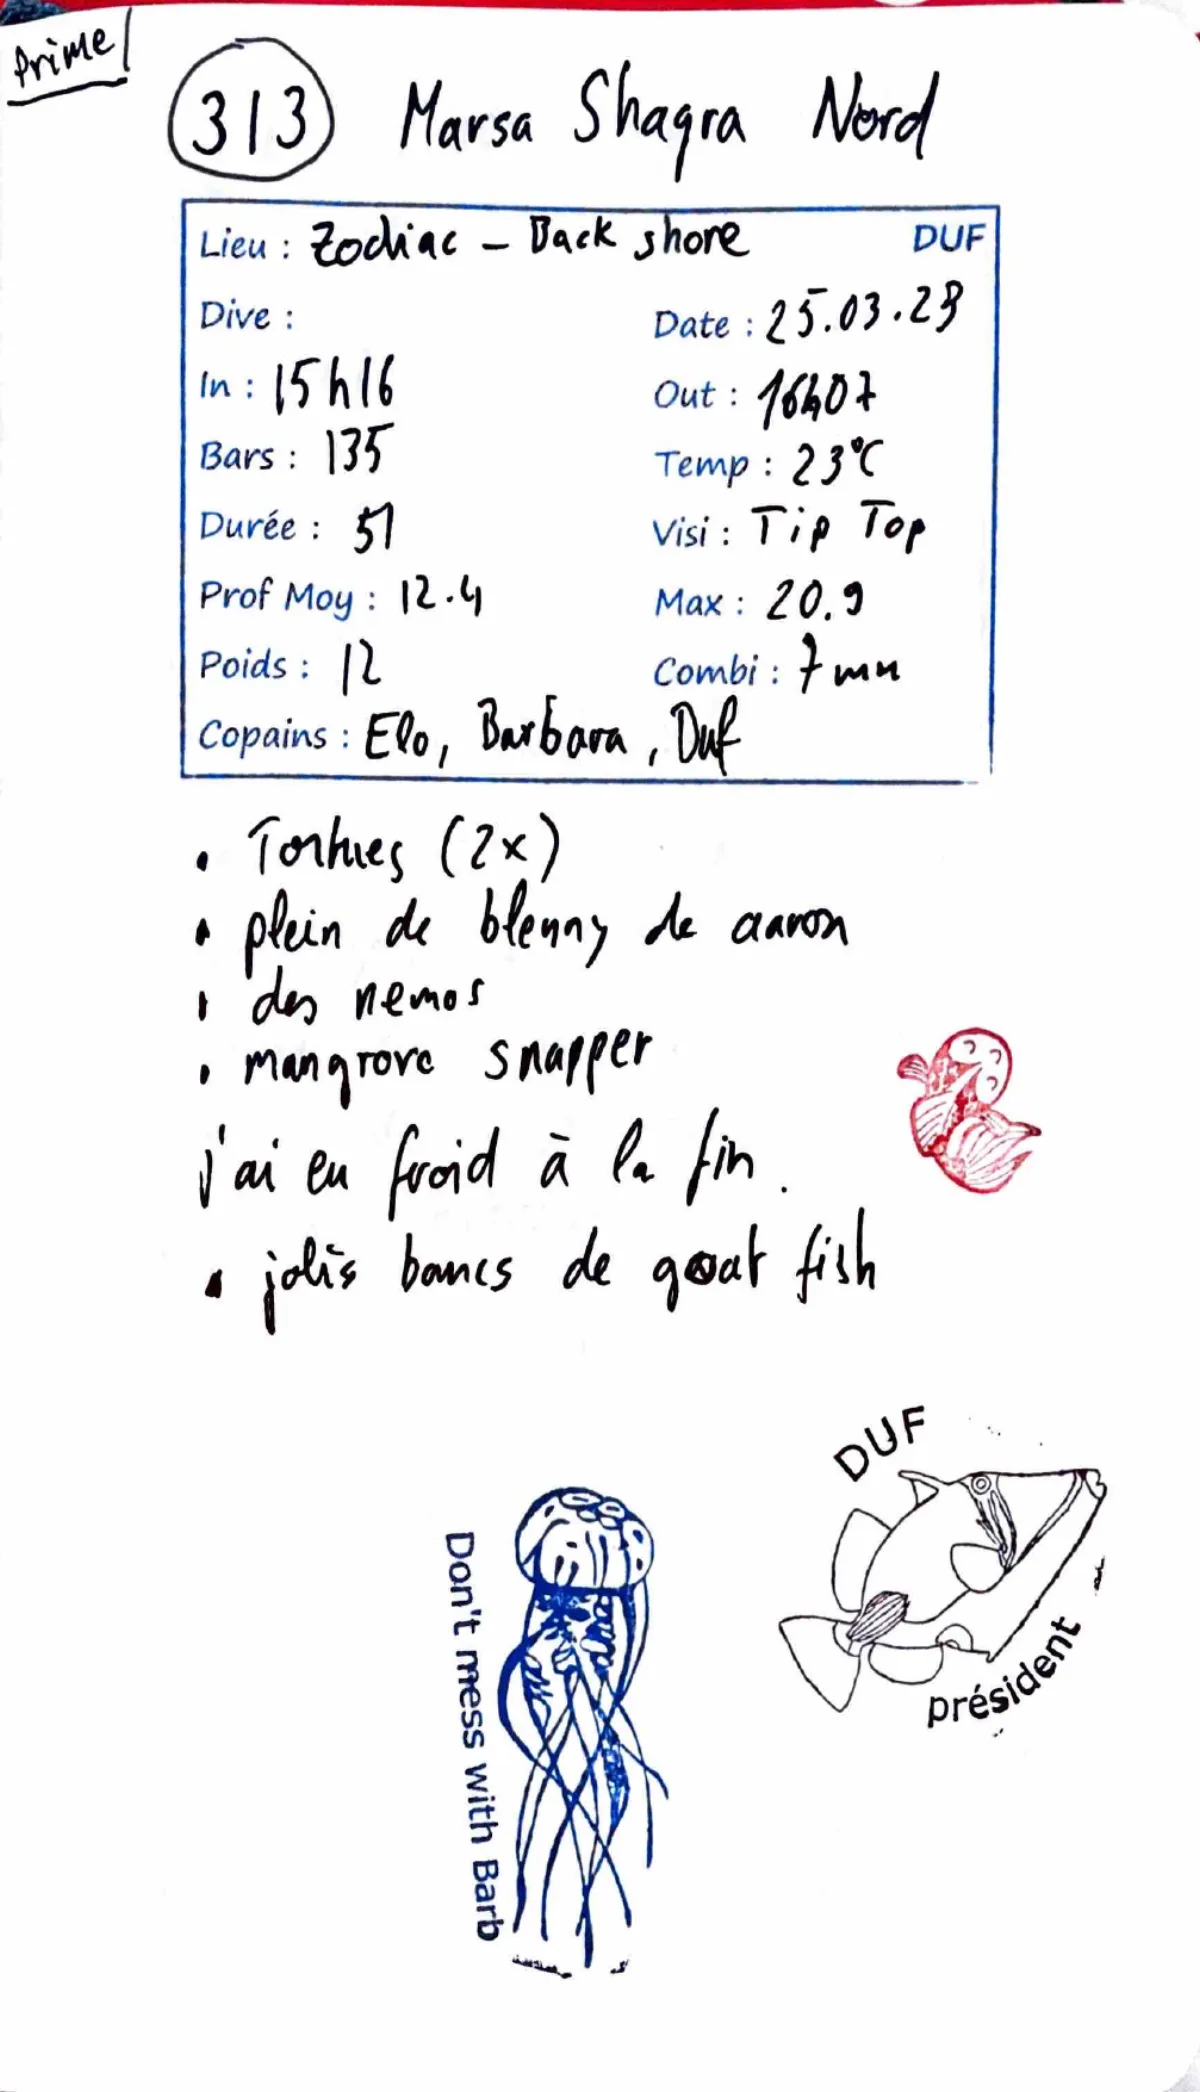 Prime
313 Marsa Shagra Nord
Lieu : Zodiac - Back shore DUF
Dive : Date : 25.03.23
In : 15h16 Out : 16h07
Bars : 135 Temp : 23°C
Durée : 51 Visi : Tip Top
Prof Moy : 12.4 Max : 20.9
Poids : 12 Combi : 7mm
Copains : Elo, Barbara, Duf
• Tortues (2x)
• plein de blenny de aaron
• des nemos
• mangrove snapper
j'ai eu froid à la fin.
• jolis bancs de goat fish
DUF
président
Don't mess with Barb